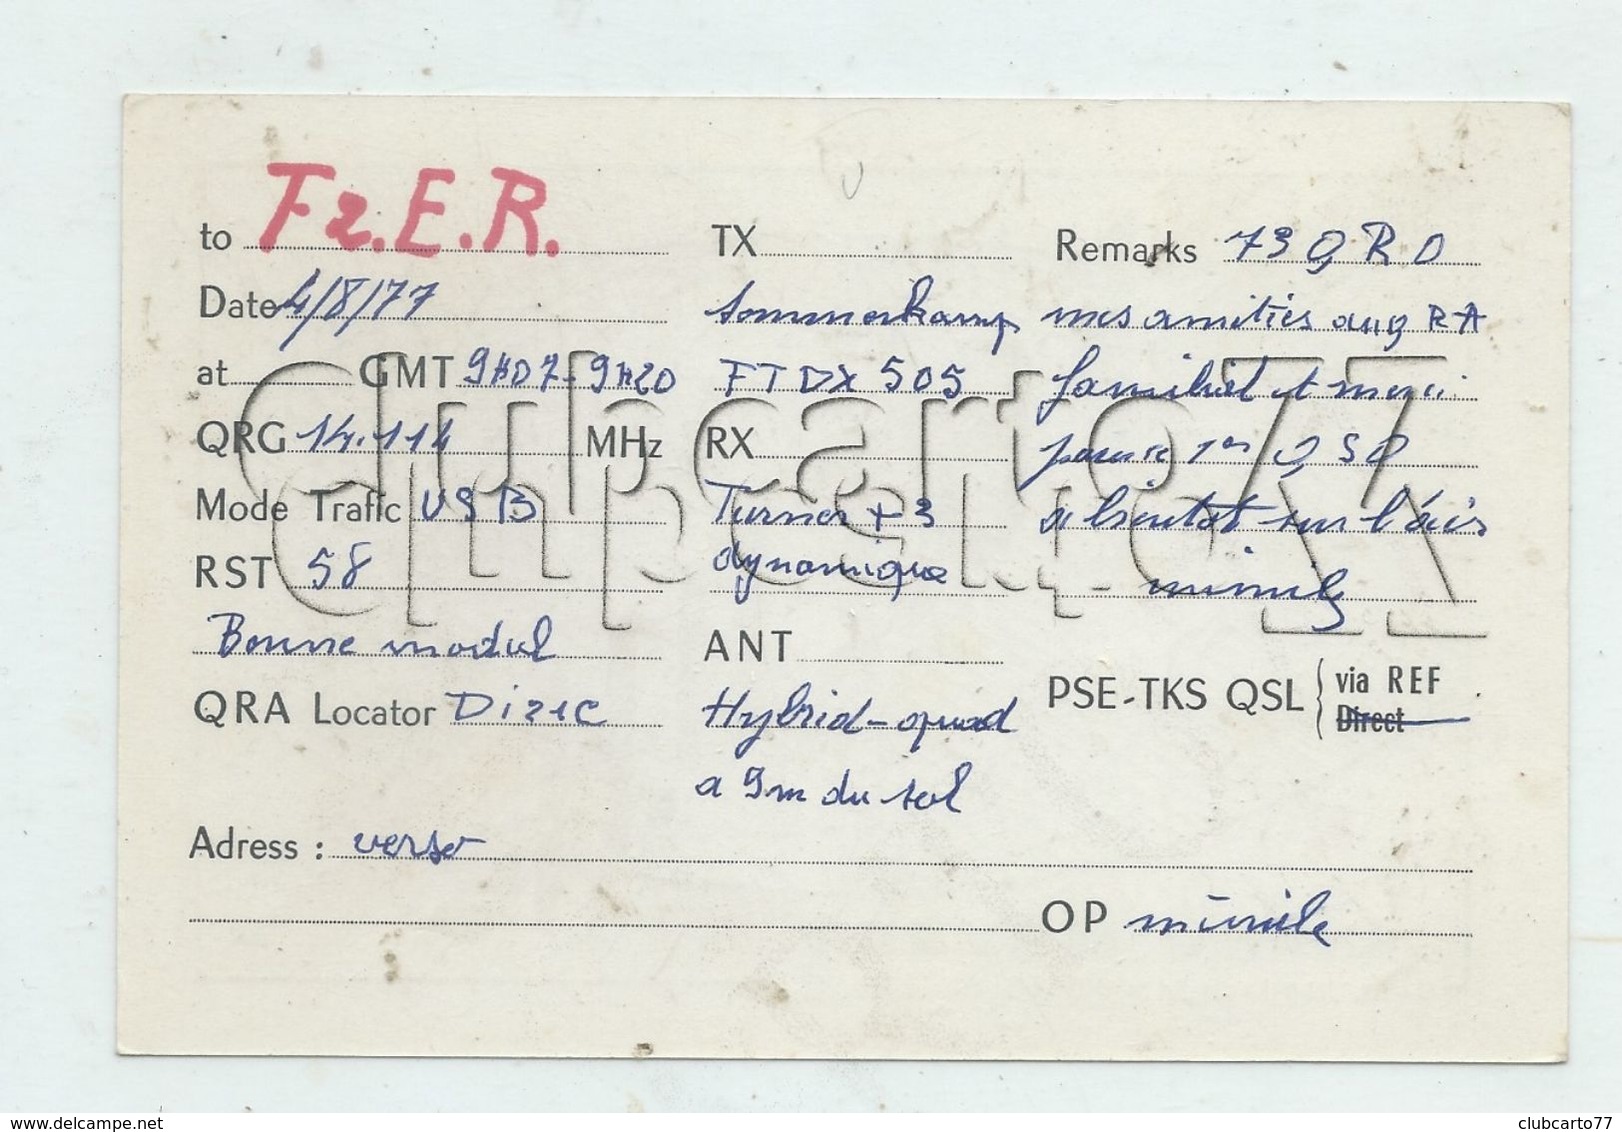 to F2.E.R.
Date 4/8/77
at GMT 9H07-9H20
QRG 14.114 MHz
Mode Trafic USB
RST 58
Bonne modul
QRA Locator DI21C
TX
Sommerkamp
FT DX 505
RX
Turner + 3
dynamique
ANT
Hybrid-quad
a 9m du sol
Remarks 73 QRO
mes amitiés au QRA
familial et merci
pour le 1er QSO
a bientot sur l'air
PSE-TKS QSL via REF
Direct
Adress : verso
OP
clubcarto77
www.delcampe.net
clubcarto77